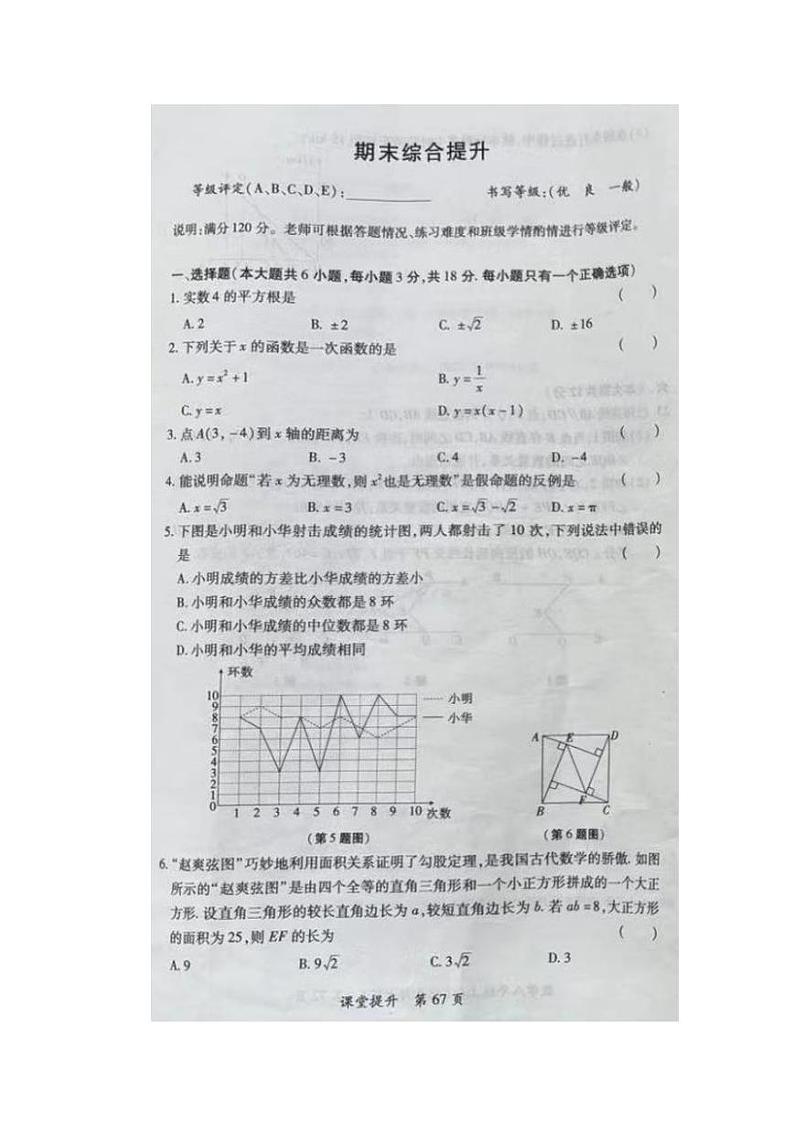 期末综合提升
等级评定(A、B、C、D、E):
书写等级:(优 良 一般)
说明:满分120分。老师可根据答题情况、练习难度和班级学情酌情进行等级评定。
一、选择题(本大题共6小题,每小题3分,共18分.每小题只有一个正确选项)
1.实数4的平方根是 ( )
A.2 B. ±2 C. ±√2 D. ±16
2.下列关于x的函数是一次函数的是 ( )
A.y=x²+1 B.y=1/x
C.y=x D.y=x(x-1)
3.点A(3,-4)到x轴的距离为 ( )
A.3 B. -3 C.4 D. -4
4.能说明命题“若x为无理数,则x²也是无理数”是假命题的反例是 ( )
A.x=√3 B.x=3 C.x=√3-√2 D.x=π
5.下图是小明和小华射击成绩的统计图,两人都射击了10次,下列说法中错误的
是 ( )
A.小明成绩的方差比小华成绩的方差小
B.小明和小华成绩的众数都是8环
C.小明和小华成绩的中位数都是8环
D.小明和小华的平均成绩相同
环数
10
9
8
7
6
5
4
3
2
1
0
1 2 3 4 5 6 7 8 9 10 次数
小明
小华
(第5题图)
A E D
B F C
(第6题图)
6.“赵爽弦图”巧妙地利用面积关系证明了勾股定理,是我国古代数学的骄傲.如图
所示的“赵爽弦图”是由四个全等的直角三角形和一个小正方形拼成的一个大正
方形.设直角三角形的较长直角边长为a,较短直角边长为b.若ab=8,大正方形
的面积为25,则EF的长为 ( )
A.9 B.9√2 C.3√2 D.3
课堂提升 第67页